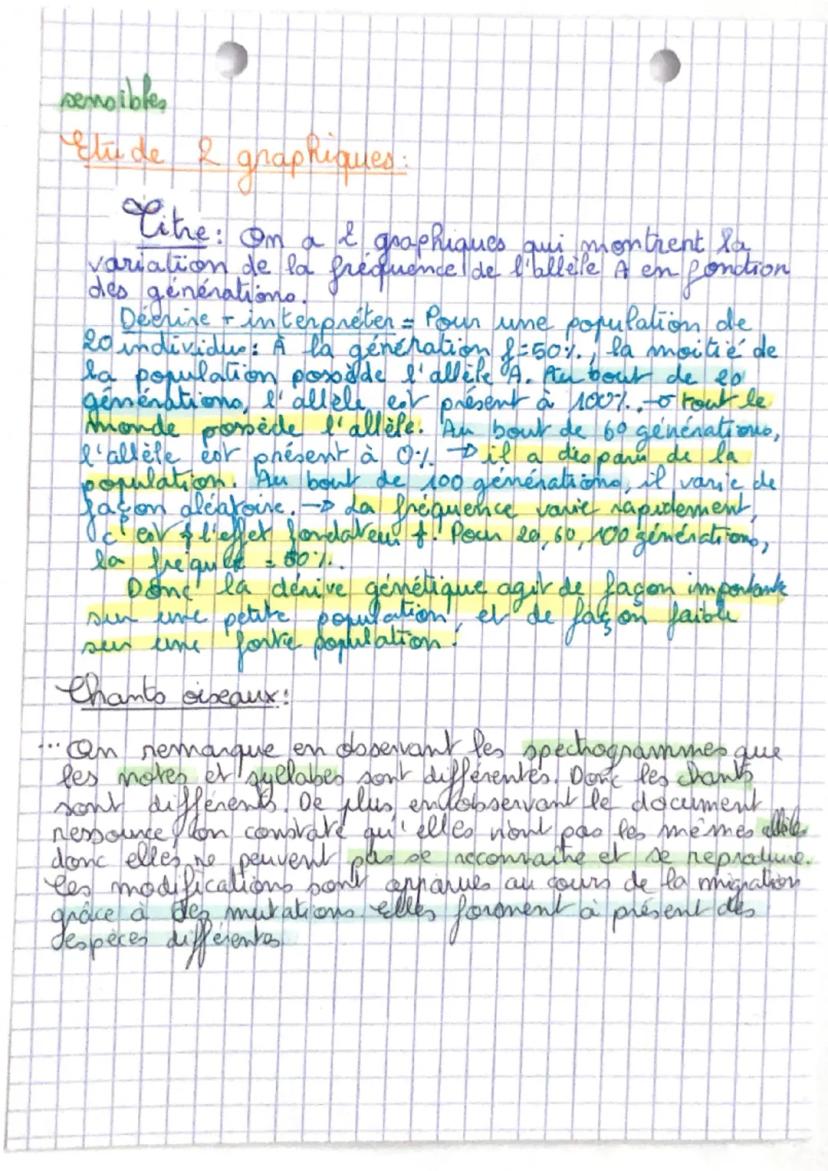 sensibles
Etude 2 graphiques:
Titre: On a 2 graphiques qui montrent la
variation de la fréquence de l'allèle A en fonction
des générations.
Décrire + interpréter = Pour une population de
20 individus: A la génération f=50%, la moitié de
la population possède l'allèle A. Au bout de 20
générations, l'allèle est présent à 100%. → tout le
monde possède l'allèle. Au bout de 60 générations,
l'allèle est présent à 0% → il a disparu de la
population. Au bout de 100 générations, il varie de
façon aléatoire. → La fréquence varie rapidement,
c'est l'effet fondateur. Pour 20, 60, 100 générations,
la = 50%.
Donc la dérive génétique agit de façon importante
sur une petite population, et de façon faible
sur une forte population.
Chants oiseaux:
... On remarque en observant les spectrogrammes que
les notes et syllabes sont différentes. Donc les chants
sont différents. De plus en observant le document
ressource, on constate qu'elles n'ont pas les mêmes allèles
donc elles ne peuvent pas se reconnaitre et se reproduire.
Ces modifications sont apparues au cours de la migration
grâce à des mutations. Elles forment à présent des
espèces différentes